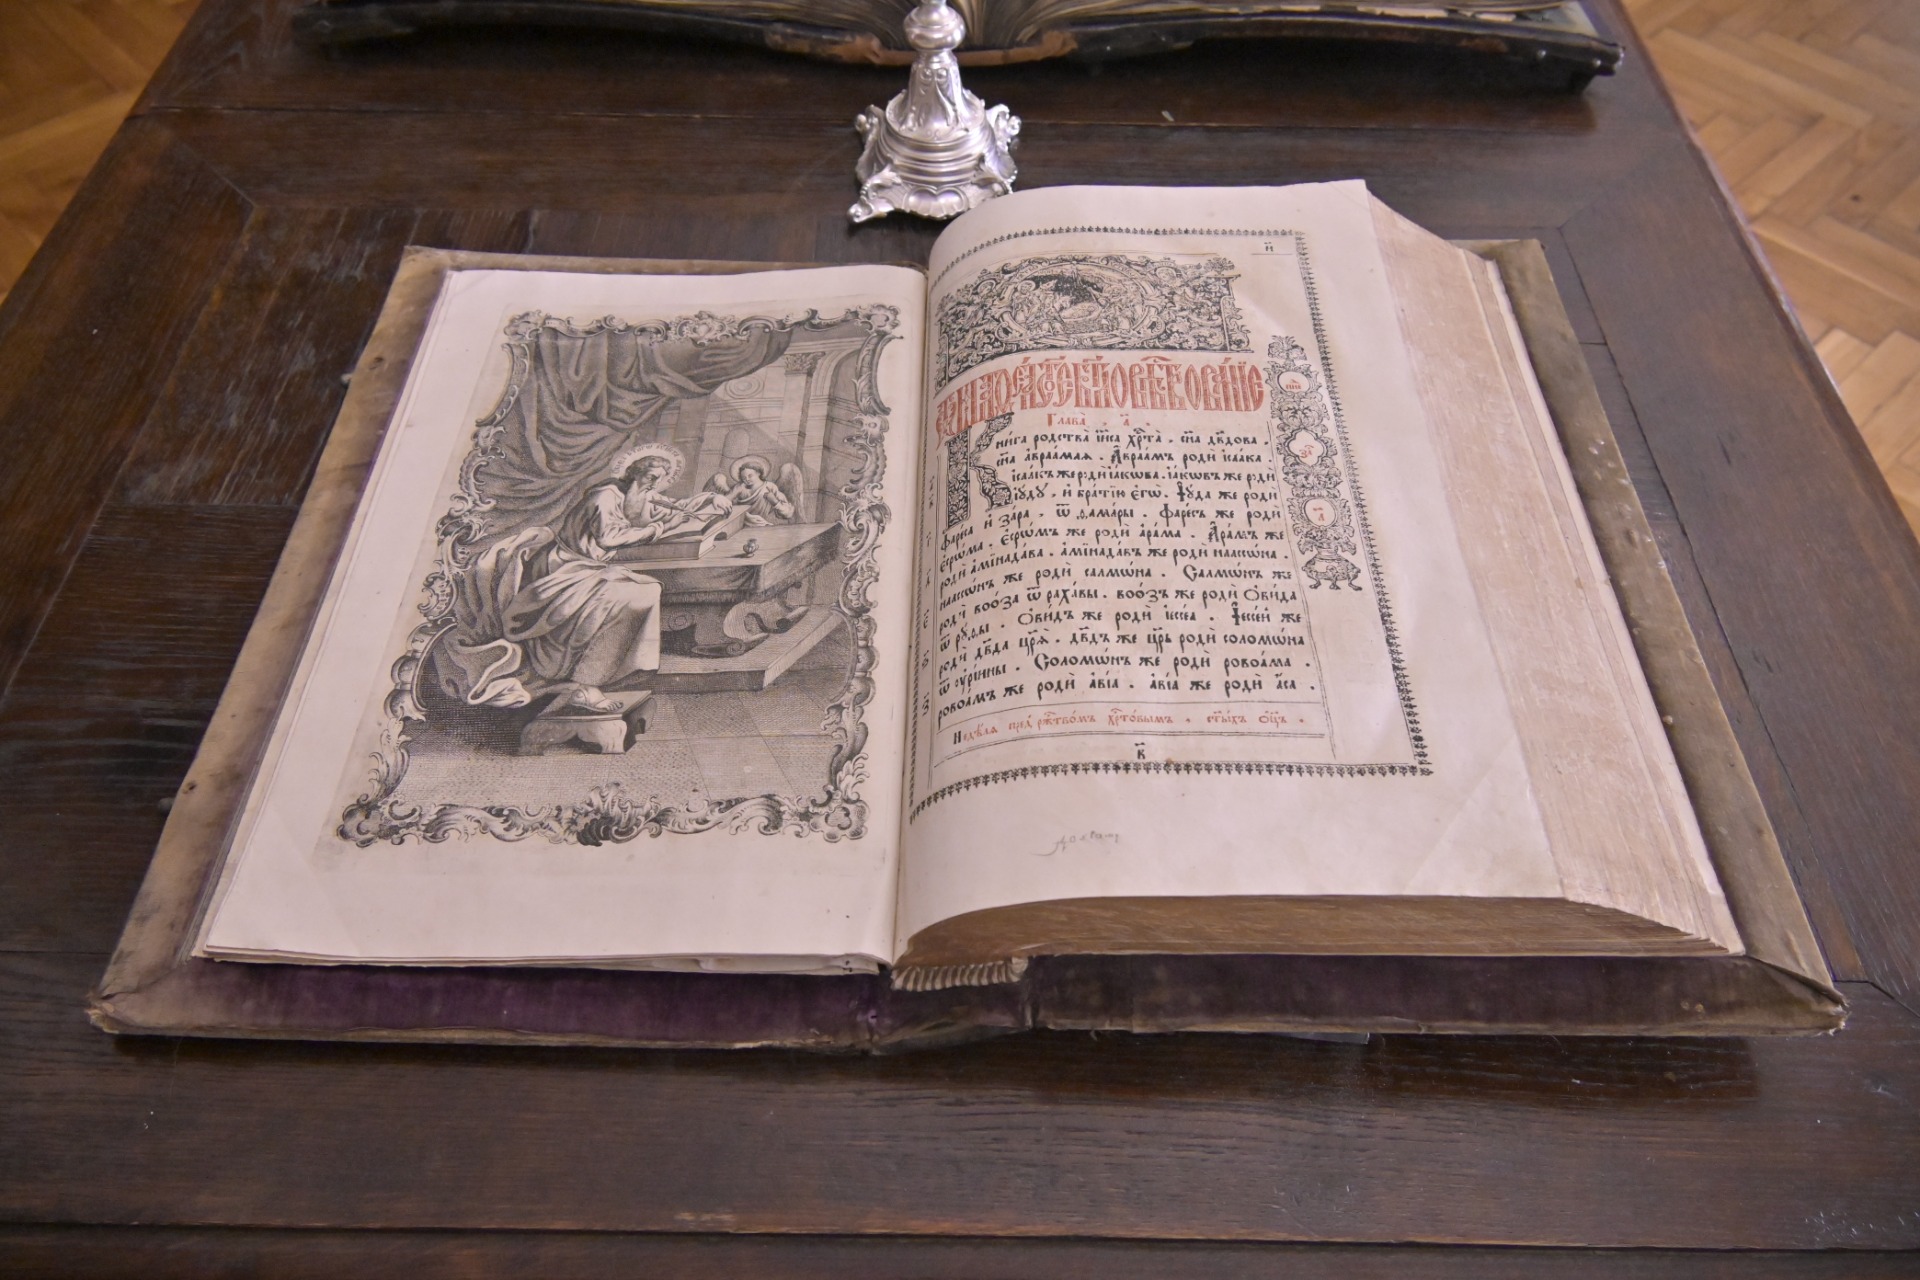 и҃
Глава̀ . а҃ .
Кни́га родства̀ і҆и҃са хр҃та̀ . сн҃а дв҃дова .
сн҃а авраамая . А҆враамъ родѝ і҆саа́ка .
і҆саа́къ же родѝ і҆а́кѡва . і҆а́кѡвъ же родѝ
і҆ꙋ́дꙋ , и҆ бра́тїю є҆гѡ̀ . І҆ꙋ́да же родѝ
фаре́са и҆ за́ра , ѿ ѳама́ры . Фаре́съ же родѝ
є҆срѡ́ма . Є҆срѡ́мъ же родѝ а҆ра́ма . А҆ра́мъ же
родѝ а҆мїнада́ва . а҆мїнада́въ же родѝ наассѡ́на .
наассѡ́нъ же родѝ салмѡ́на . Салмѡ́нъ же
родѝ воо́за ѿ раха́вы . воо́зъ же родѝ ѻ҆ви́да
ѿ рꙋ́ѳы . Ѻ҆ви́дъ же родѝ і҆ессе́а . І҆ессе́й же
родѝ дв҃да цр҃ѧ̀ . дв҃дъ же цр҃ь родѝ соломѡ́на
ѿ ᲂу҆рі́ины . Соломѡ́нъ же родѝ ровоа́ма .
ровоа́мъ же родѝ а҆ві́а . а҆ві́а же родѝ а҆́са .
Недѣ́лѧ пред̾ ржⷭ҇тво́мъ хрⷭ҇то́вымъ , ст҃ы́хъ ѻ҆ц҃ъ .
в҃